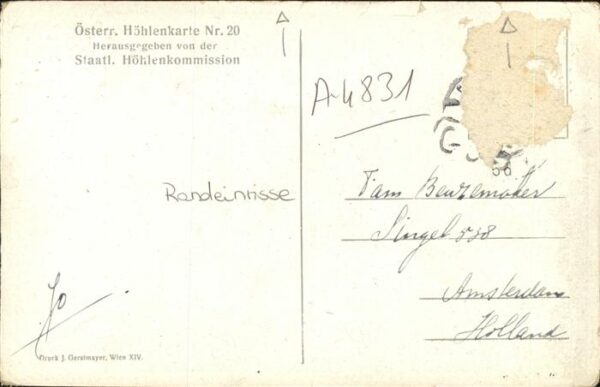 Österr. Höhlenkarte Nr. 20
Herausgegeben von der
Staatl. Höhlenkommission
A-4831
Randeinrisse
Jo
Fam Beuzemaker
Singel 538
Amsterdam
Holland
Druck J. Gerstmayer, Wien XIV.